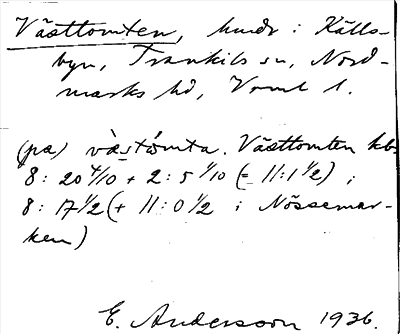 Västtomten, hmdr i Källs-
byn, Trankils sn, Nord-
marks hd, Vrml l.
(pa) vàstómta. Västtomten kb.
8: 20 4/10 + 2: 5 1/10 (= 11:1 1/2) ;
8: 17 1/2 (+ 11:0 1/2 i Nössemar-
ken)
E. Andersson 1936.